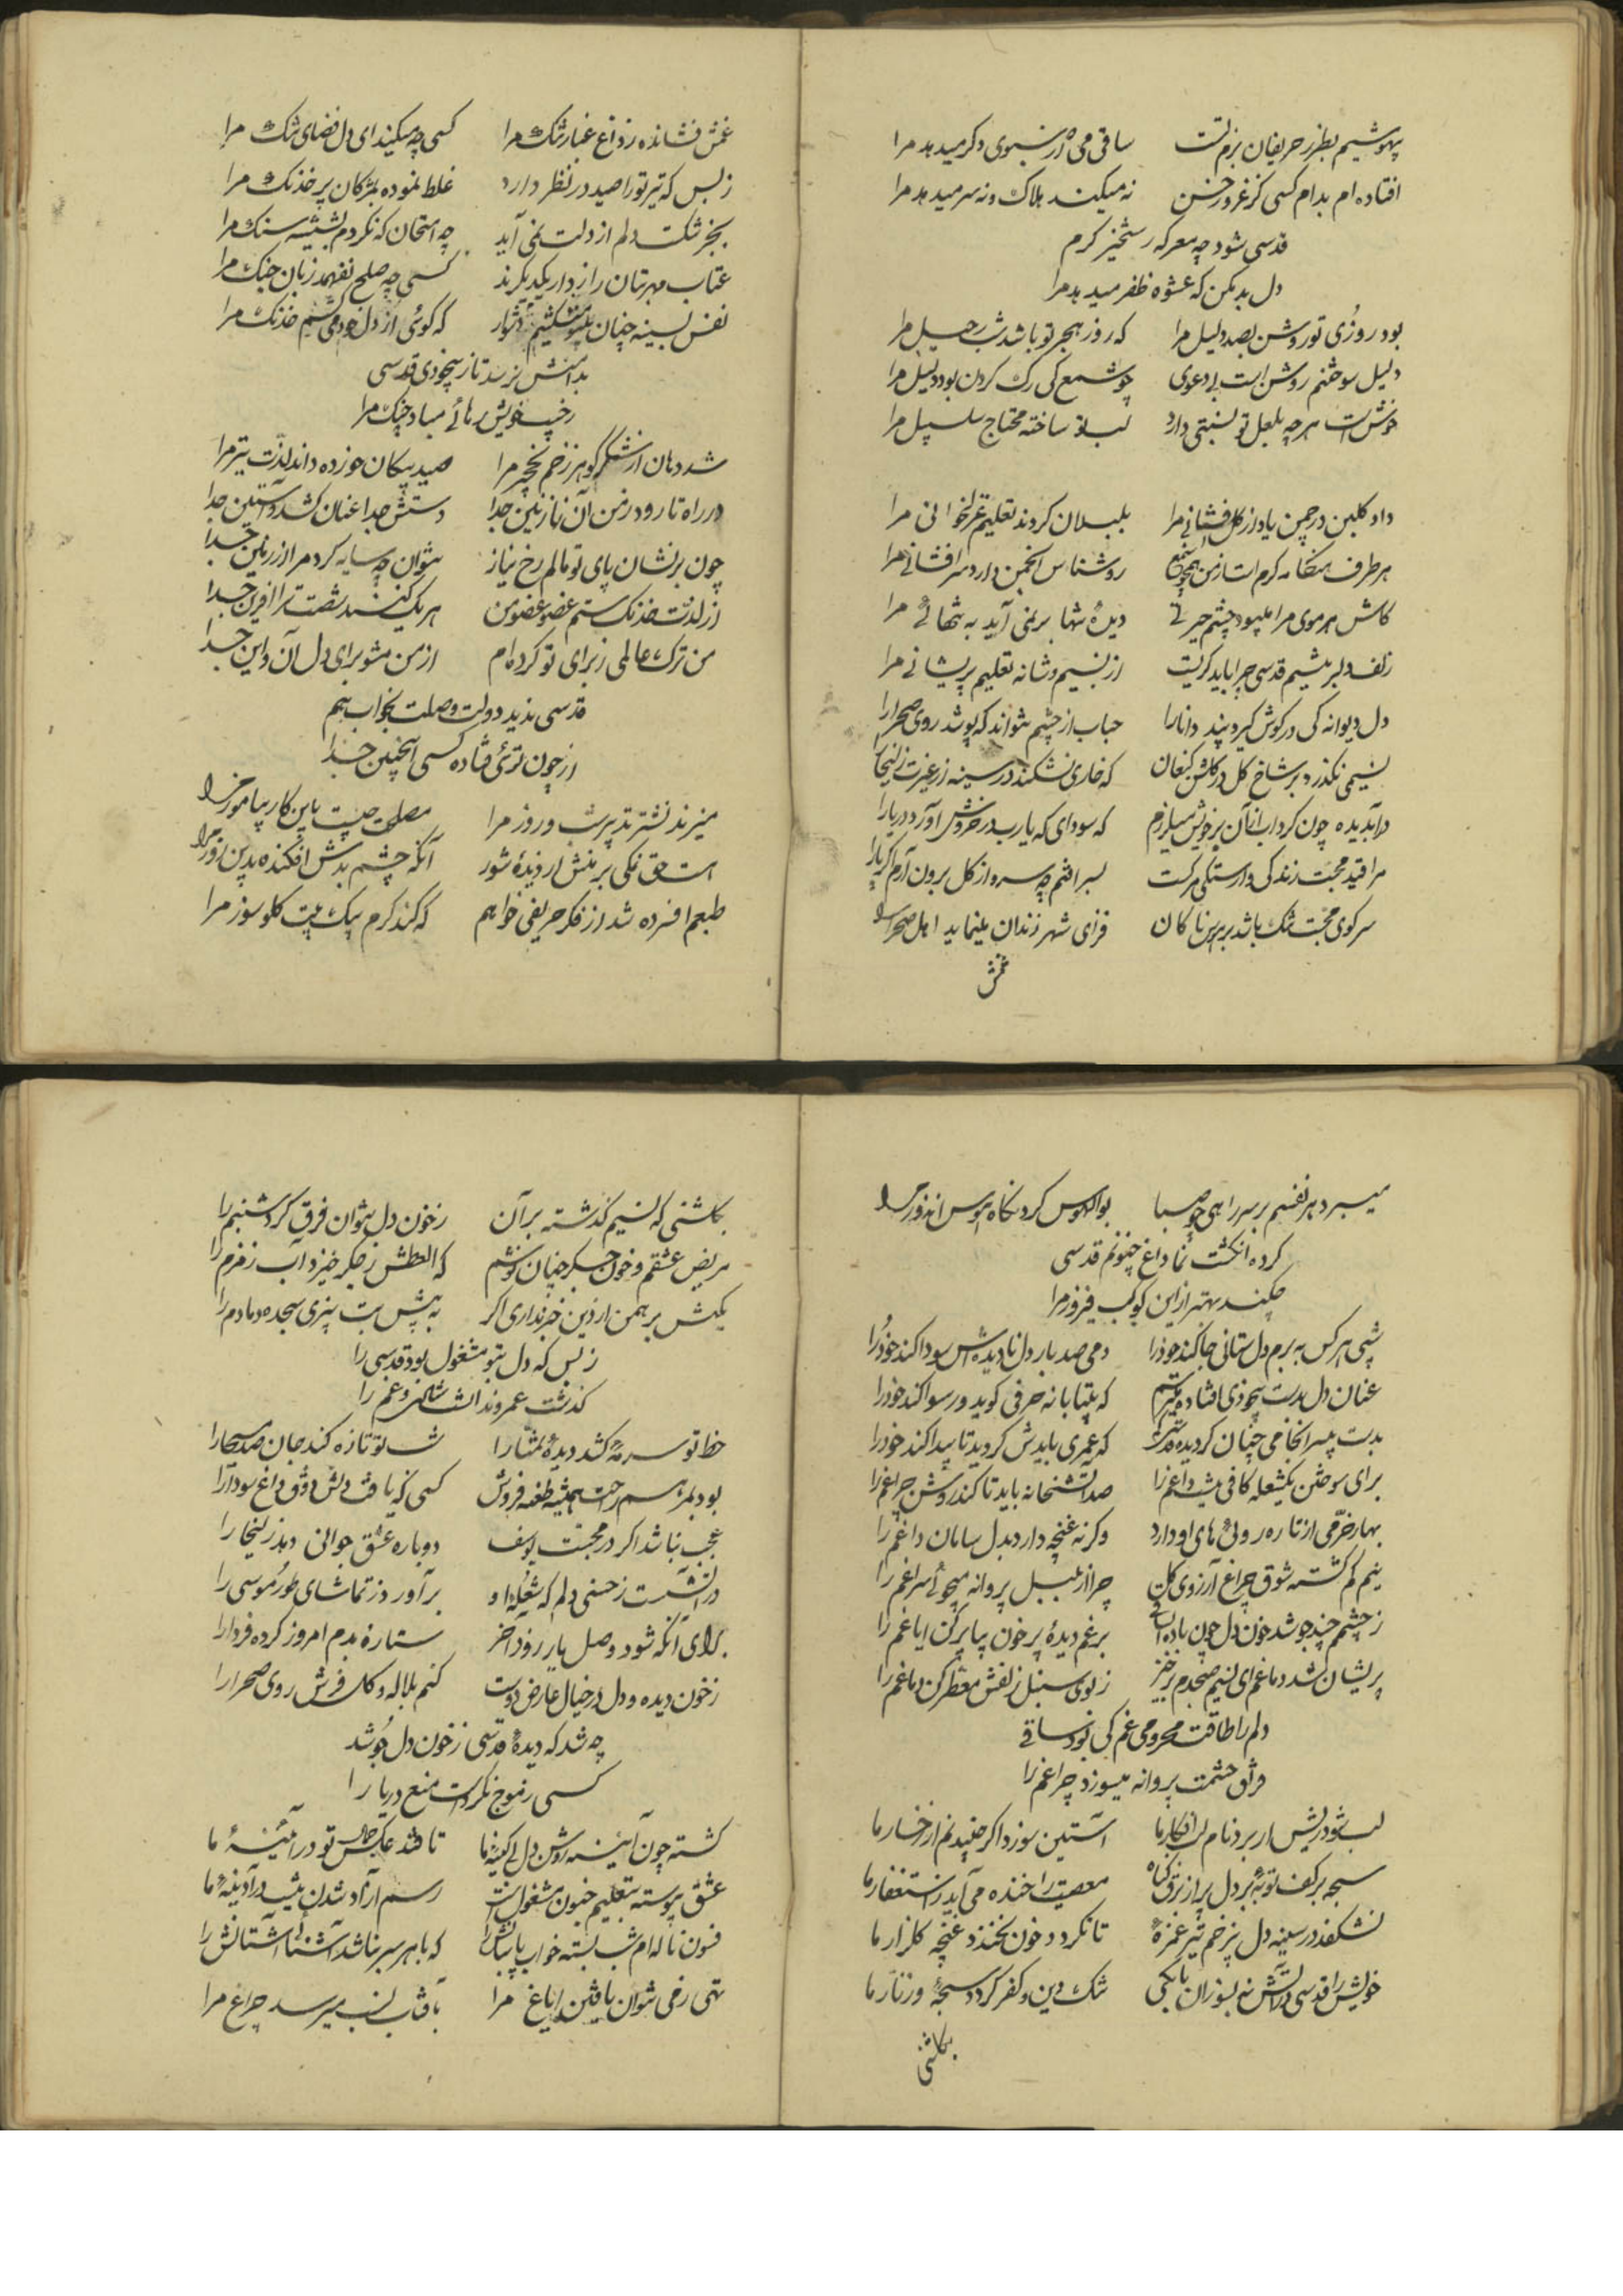 بیهوشیم بطرز حریفان بزم تست ساقی می از سبوی دگر میدهد مرا
افتاده ام بدام کسی کز غرور حسن نه میکند هلاک و نه سر میدهد مرا
قدسی شود چه معرکه رستخیز گرم
دل بد مکن که عشوه ظفر میدهد مرا
بود روزی تو روشن بصد دلیل مرا که روز هجر تو باشد شب رحیل مرا
دلیل سوختنم روشن است بی دعوی چو شمع کی رک کردن بود دلیل مرا
خوش است هر چه بلعل تو نسبتی دارد لب تو ساخته محتاج سلسبیل مرا
داد گلبن در چمن یاد از گل افشانی مرا بلبلان کردند تعلیم غزلخوانی مرا
هر طرف هنگامه گرم است از من همچو شمع روشناس انجمن دارد سرافشانی مرا
کاش هر موی مرا میبود چشم حیرتی دیدهٔ تنها برنمی آید به تنهائی مرا
زلف دلبر نیستم قدسی چرا باید گریست از نسیم و شانه تعلیم پریشانی مرا
دل دیوانه کی در گوش گیرد پند دانا را حباب از چشم نتواند که پوشد روی صحرا را
نسیمی نگذرد بر شاخ گل در گلشن کنعان که خاری نشکند در سینه از غیرت زلیخا را
درآ بدیده چون گرداب از آن بر خویش میلرزم که سودای که یارب در خروش آورد دریا را
مرا قید محبت زندگی وارستگی مرگست بسر افتم چو سرو از گل برون آرم اگر پا را
سر کوی محبت تنگ باشد بر هوسناکان فزای شهر زندان مینماید اهل صحرا را
غمش
غمش فشانده ز داغ غبار تنگ مرا کسی چه میکند ای دل فضای تنگ مرا
ز بس که تیر تو را صید در نظر دارد غلط نموده بمژگان پر خدنگ مرا
بجز شکست دلم از دلت نمی آید چه امتحان که نکردم بشیشه سنگ مرا
عتاب مهر بتان راز دار یکدیگرند کسی چه صلح نفهمد زبان جنگ مرا
نفس بسینه چنان بیتو میکشم دشوار که گوئی از دل خود می کشم خدنگ مرا
بدامنش نرسد تا ز بیخودی قدسی
رخیب خویش رهائی مباد چنگ مرا
شد دهان از شکر گوهر زخم نخچیر مرا صید پیکان خورده داند لذت تیر مرا
در راه تا رود ز من آن نازنین جدا دستش جدا عنان کشد و آستین جدا
چون بر نشان پای تو مالم رخ نیاز نتوان چو سایه کرد مرا از زمین جدا
از لذت خدنک ستم عضو عضو من هر یک کنند شصت ترا آفرین جدا
من ترک عالمی ز برای تو کرده ام از من مشو برای دل آن و این جدا
قدسی ندید دولت وصلت بخواب هم
از چون توئی فتاده کسی اینچنین جدا
میزند نشتر تدبیر شب و روز مرا مصلحت چیست باین کار بیاموز مرا
است حق نمکی بر منش از دیدهٔ شور آنکه چشم بدش افکنده بدین روز مرا
طبعم افسرده شد از فکر حریفی خواهم که کند گرم بیک بیت گلوسوز مرا
میبرد هر نفسم بر سر راهی چو صبا بوالهوس کرد نگاه هوس اندوز مرا
کرده انگشت نما داغ جنونم قدسی
چکند بهتر ازین کوکب فیروز مرا
شبی هر کس به بزم دل ستانی جا کند خود را دمی صد بار دل نادیده اش سودا کند خود را
عنان دل بدست بیخودی افتاده میترسم که بیتابانه حرفی گوید و رسوا کند خود را
بدست بی سرانجامی چنان گردیده که عمری بایدش گردید تا پیدا کند خود را
برای سوختن یکشعله کافی نیست داغم را صد آتشخانه باید تا کند روشن چراغم را
بهار خرمی از تازه روئی های او دارد وگرنه غنچه دارد بدل سامان داغم را
نیم گم گشته شوق چراغ آرزوی گل چرا از بلبل پروانه میجوئی سراغم را
ز چشمم چند جوشد خون دل چون باده ای ساقی برغم دیدهٔ پر خون بیا پر کن ایاغم را
پریشان شد دماغم ای نسیم صبحدم برخیز ز بوی سنبل زلفش معطر کن دماغم را
دلم را طاقت محرومی غم کی بود ساقی
فراق حشمت پروانه میسوزد چراغم را
لب شود ریش ار برد نام لب افکار ما آستین سوزد اگر چیند نم از رخسار ما
سبحه بر کف توبه بر لب دل پر از برق گناه معصیت را خنده می آید ز استغفار ما
نشکفد در سینه دل بی زخم تیر غمزهٔ تا نگردد خون نخندد غنچه گلزار ما
خویش را قدسی در آتش نه بسوزان تا بکی ننگ دین و کفر گردد سبحه و زنار ما
بگلشنی
بگلشنی که نسیم گذشته بر آن ز خون دل نتوان فرق کرد شبنم را
مریض عشقم و خون جگر چنان نوشم که العطش ز جگر خیزد آب زمزم را
بکش برهمن از دین خبر نداری اگر به پیش بت نبری سجده دمادم را
ز بس که دل بتو مشغول بود قدسی را
گذشت عمر و ندانست شادی و غم را
خط تو سرمه کشد دیدهٔ تمنا را لب تو تازه کند جان صد مسیحا را
بود بمرهم راحت همیشه طعنه فروش کسی که یافت دلش ذوق داغ سودا را
عجب نباشد اگر در محبت یوسف دوباره عشق جوانی دهد زلیخا را
در آتشست ز حسنی دلم که شعلهٔ او برآورد ز تماشای طور موسی را
برای آنکه شود وصل یار روز آخر ستاره بدم امروز کرده فردا را
ز خون دیده و دل در خیال عارض دوست کنم بلاله و گل فرش روی صحرا را
چه شد که دیدهٔ قدسی ز خون دل جوشد
کسی ز موج نکردست منع دریا را
گشته چون آئینه روشن دل بی کینهٔ ما تا فتد عکس جمال تو در آئینهٔ ما
عشق پیوسته بتعلیم جنون مشغول است رسم آزاد شدن نیست در آدینهٔ ما
فسون ناله ام شب بسته خواب پاسبانش را که با هر سر نباشد آشنا آستانش را
تهی ز می نتوان یافتن ایاغ مرا بآفتاب نسب میرسد چراغ مرا